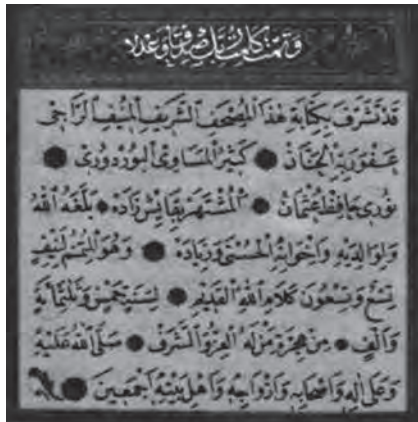 وتمت كلمات ربك صدقا وعدلا
قد تشرف بكتابة هذا المصحف الشريف المنيف الراجى
عفو ربه الحنان كثير المساوئ البوردورى
نورى حافظ عثمان المشتهر بقايش زاده بلغه الله
ولوالديه واخوانه الحسنى وزيادة وهو لنيف
تسع وتسعون كلام الله القديم لسنة خمس وثلثمائة
والف من هجرة من له العز والشرف صلى الله عليه
وعلى اله واصحابه وازواجه واهل بيته اجمعين